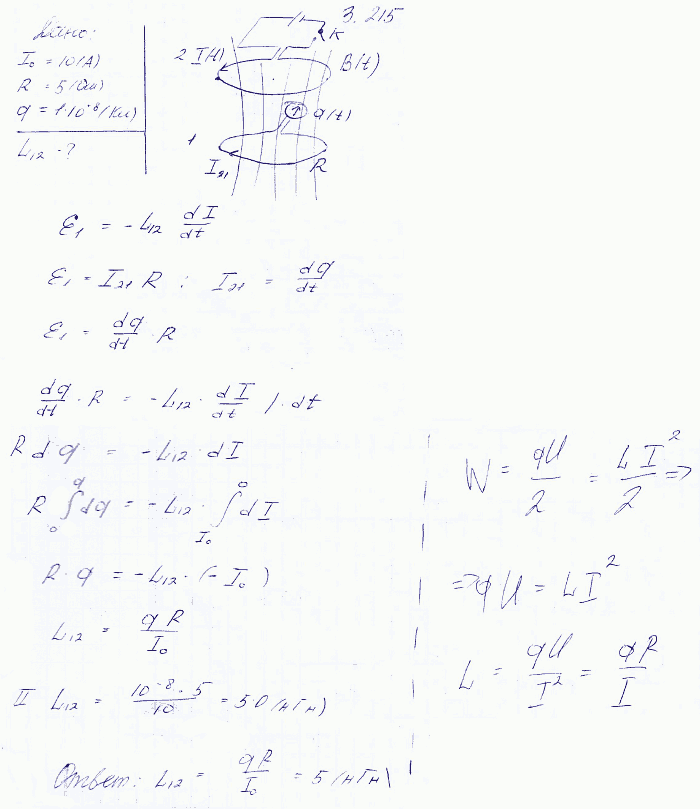 3. 215
Дано:
I₀ = 10 (А)
R = 5 (Ом)
q = 1·10⁻⁸ (Кл)
L₁₂ - ?
K
2 I(t)
B(t)
q(t)
1
I₂₁
R
ℰ₁ = -L₁₂ dI/dt
ℰ₁ = I₂₁ R ; I₂₁ = dq/dt
ℰ₁ = dq/dt · R
dq/dt · R = -L₁₂ · dI/dt / · dt
R dq = -L₁₂ · dI
R ∫₀^q dq = -L₁₂ · ∫_{I₀}^0 dI
R · q = -L₁₂ · (-I₀)
L₁₂ = qR/I₀
II L₁₂ = 10⁻⁸ · 5/10 = 5.0 (нГн)
Ответ: L₁₂ = qR/I₀ = 5 (нГн)
W = qU/2 = LI²/2 =>
=> qU = LI²
L = qU/I² = qR/I